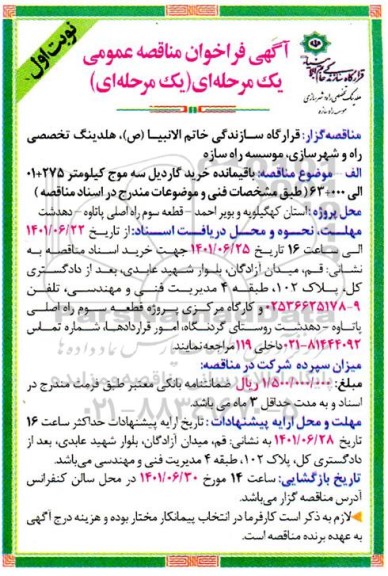 نوبت اول
آگهی فراخوان مناقصه عمومی
یک مرحله‌ای(یک مرحله‌ای)
قرارگاه سازندگی خاتم الانبیاء
موسسه راه سازه
مناقصه‌گزار: قرارگاه سازندگی خاتم الانبیا (ص)، هلدینگ تخصصی
راه و شهرسازی، موسسه راه سازه
الف - موضوع مناقصه: باقیمانده خرید گاردیل سه موج کیلومتر ۲۷۵+۰۱
الی ۰۰۰+۶۳ (طبق مشخصات فنی و موضوعات مندرج در اسناد مناقصه )
محل پروژه: استان کهگیلویه و بویر احمد - قطعه سوم راه اصلی پاتاوه - دهدشت
مهلت، نحوه و محل دریافت اسناد: از تاریخ ۱۴۰۱/۰۶/۲۲
الی ساعت ۱۶ تاریخ ۱۴۰۱/۰۶/۲۵ جهت خرید اسناد مناقصه به
نشانی: قم، میدان آزادگان، بلوار شهید عابدی، بعد از دادگستری
کل، پلاک ۱۰۲، طبقه ۴ مدیریت فنی و مهندسی، تلفن
۰۲۵۳۶۶۲۵۱۷۸-۹ و کارگاه مرکزی پروژه قطعه سوم راه اصلی
پاتاوه - دهدشت روستای گردنگاه، امور قراردادها، شماره تماس
۰۲۱-۸۱۴۴۴۰۹۲ داخلی ۱۱۹ مراجعه نمایند.
میزان سپرده شرکت در مناقصه:
مبلغ: ۱/۵۰۰/۰۰۰/۰۰۰ ریال ضمانتنامه بانکی معتبر طبق فرمت مندرج در
اسناد و به مدت حداقل ۳ ماه می باشد.
مهلت و محل ارایه پیشنهادات : تاریخ ارایه پیشنهادات حداکثر ساعت ۱۶
تاریخ ۱۴۰۱/۰۶/۲۸ به نشانی: قم، میدان آزادگان، بلوار شهید عابدی، بعد از
دادگستری کل، پلاک ۱۰۲، طبقه ۴ مدیریت فنی و مهندسی می‌باشد.
تاریخ بازگشایی: ساعت ۱۴ مورخ ۱۴۰۱/۰۶/۳۰ در محل سالن کنفرانس
آدرس مناقصه گزار می‌باشد.
لازم به ذکر است کارفرما در انتخاب پیمانکار مختار بوده و هزینه درج آگهی
به عهده برنده مناقصه است.